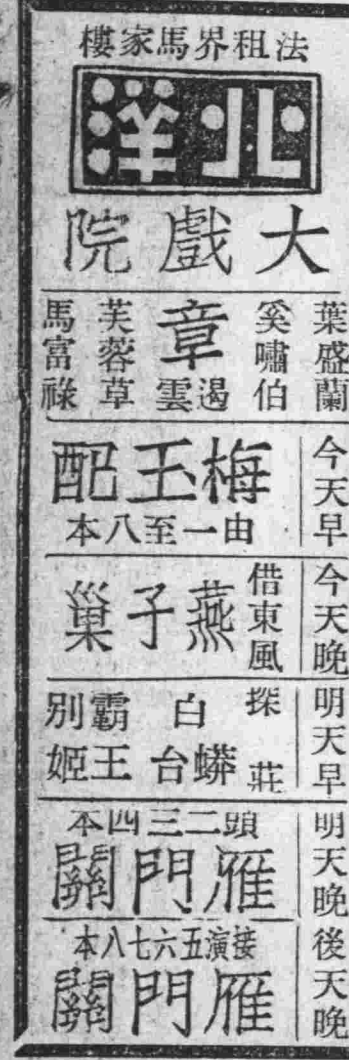 法租界馬家樓
北洋
大戲院
葉盛蘭
奚嘯伯
章遏雲
芙蓉草
馬富祿
今天早
梅玉配
由一至八本
今天晚
借東風
燕子巢
明天早
探莊
白蟒台
霸王別姬
明天晚
頭二三四本
雁門關
後天晚
接演五六七八本
雁門關